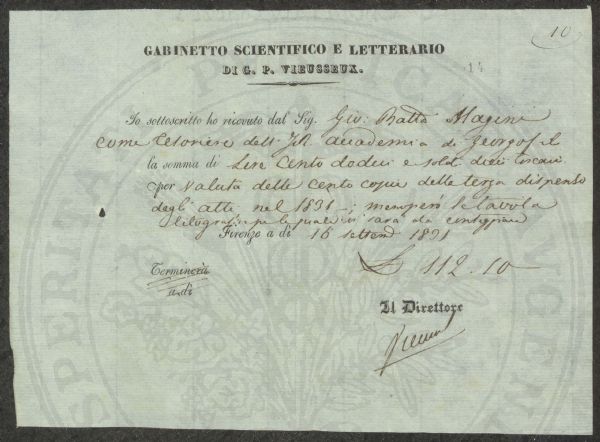 10
GABINETTO SCIENTIFICO E LETTERARIO
DI G. P. VIEUSSEUX.
14
Io sottoscritto ho ricevuto dal Sig. Gio. Batta Magini
come Tesoriere dell' I R accademia de Georgofili
la somma di Lire Cento dodici e soldi dieci toscani
per valuta delle cento copie della terza dispensa
degli atti nel 1831
litografia per le quali sarà da
Firenze a dì 16 settemb 1831
Terminerà £ 112.10
a dì
Il Direttore
Vieusseux